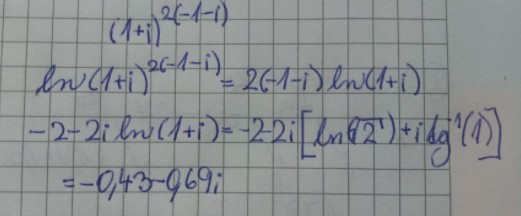 (1+i)^2(-1-i)
ln(1+i)^2(-1-i) = 2(-1-i) ln(1+i)
-2-2i ln(1+i) = -2-2i [ln(√2) + i tg^-1(1)]
= -0,43-0,69i